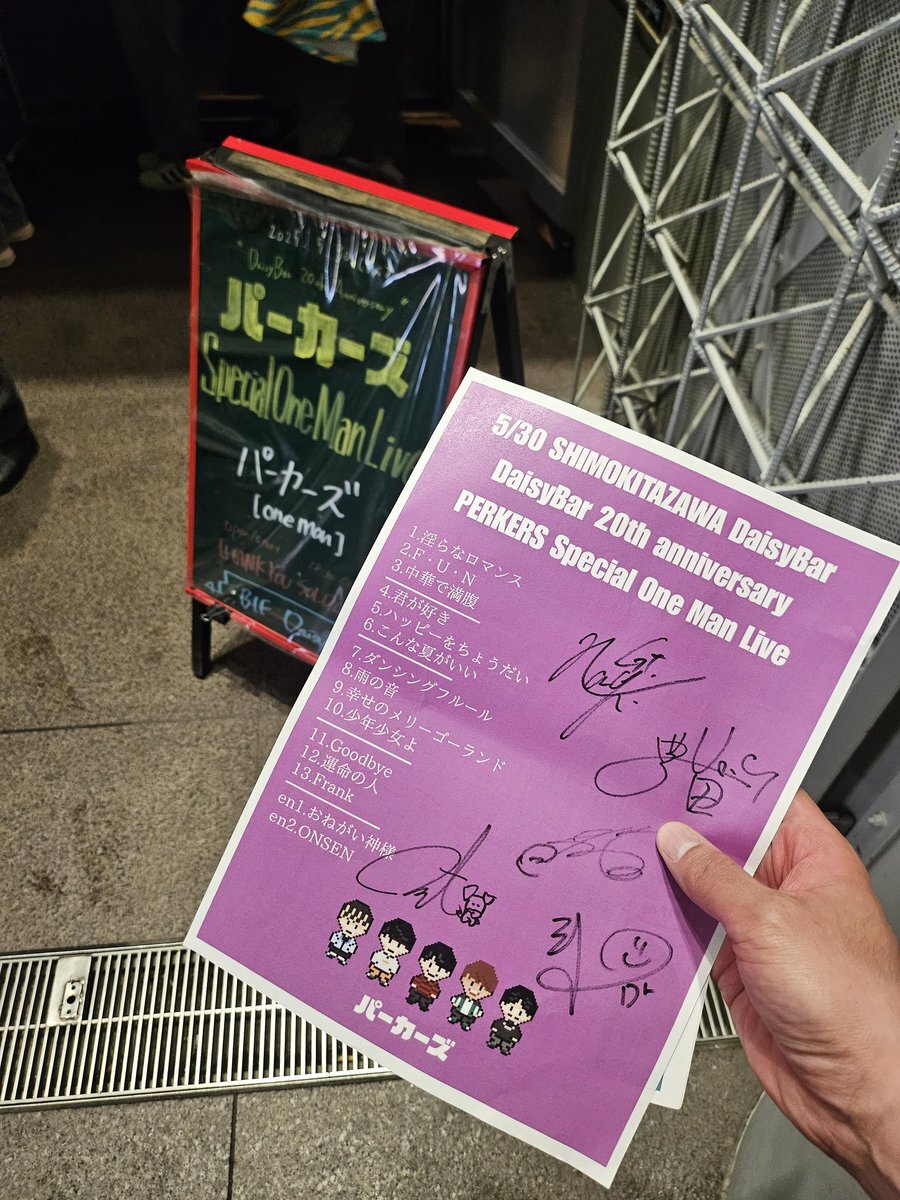 "DaisyBar 20th Anniversary"
パーカーズ
Special One Man Live
パーカーズ
[one man]
THANK YOU
5/30 SHIMOKITAZAWA DaisyBar
DaisyBar 20th anniversary
PERKERS Special One Man Live
1.淫らなロマンス
2.F・U・N
3.中華で満腹
4.君が好き
5.ハッピーをちょうだい
6.こんな夏がいい
7.ダンシングフルール
8.雨の音
9.幸せのメリーゴーランド
10.少年少女よ
11.Goodbye
12.運命の人
13.Frank
en1.おねがい神様
en2.ONSEN
パーカーズ